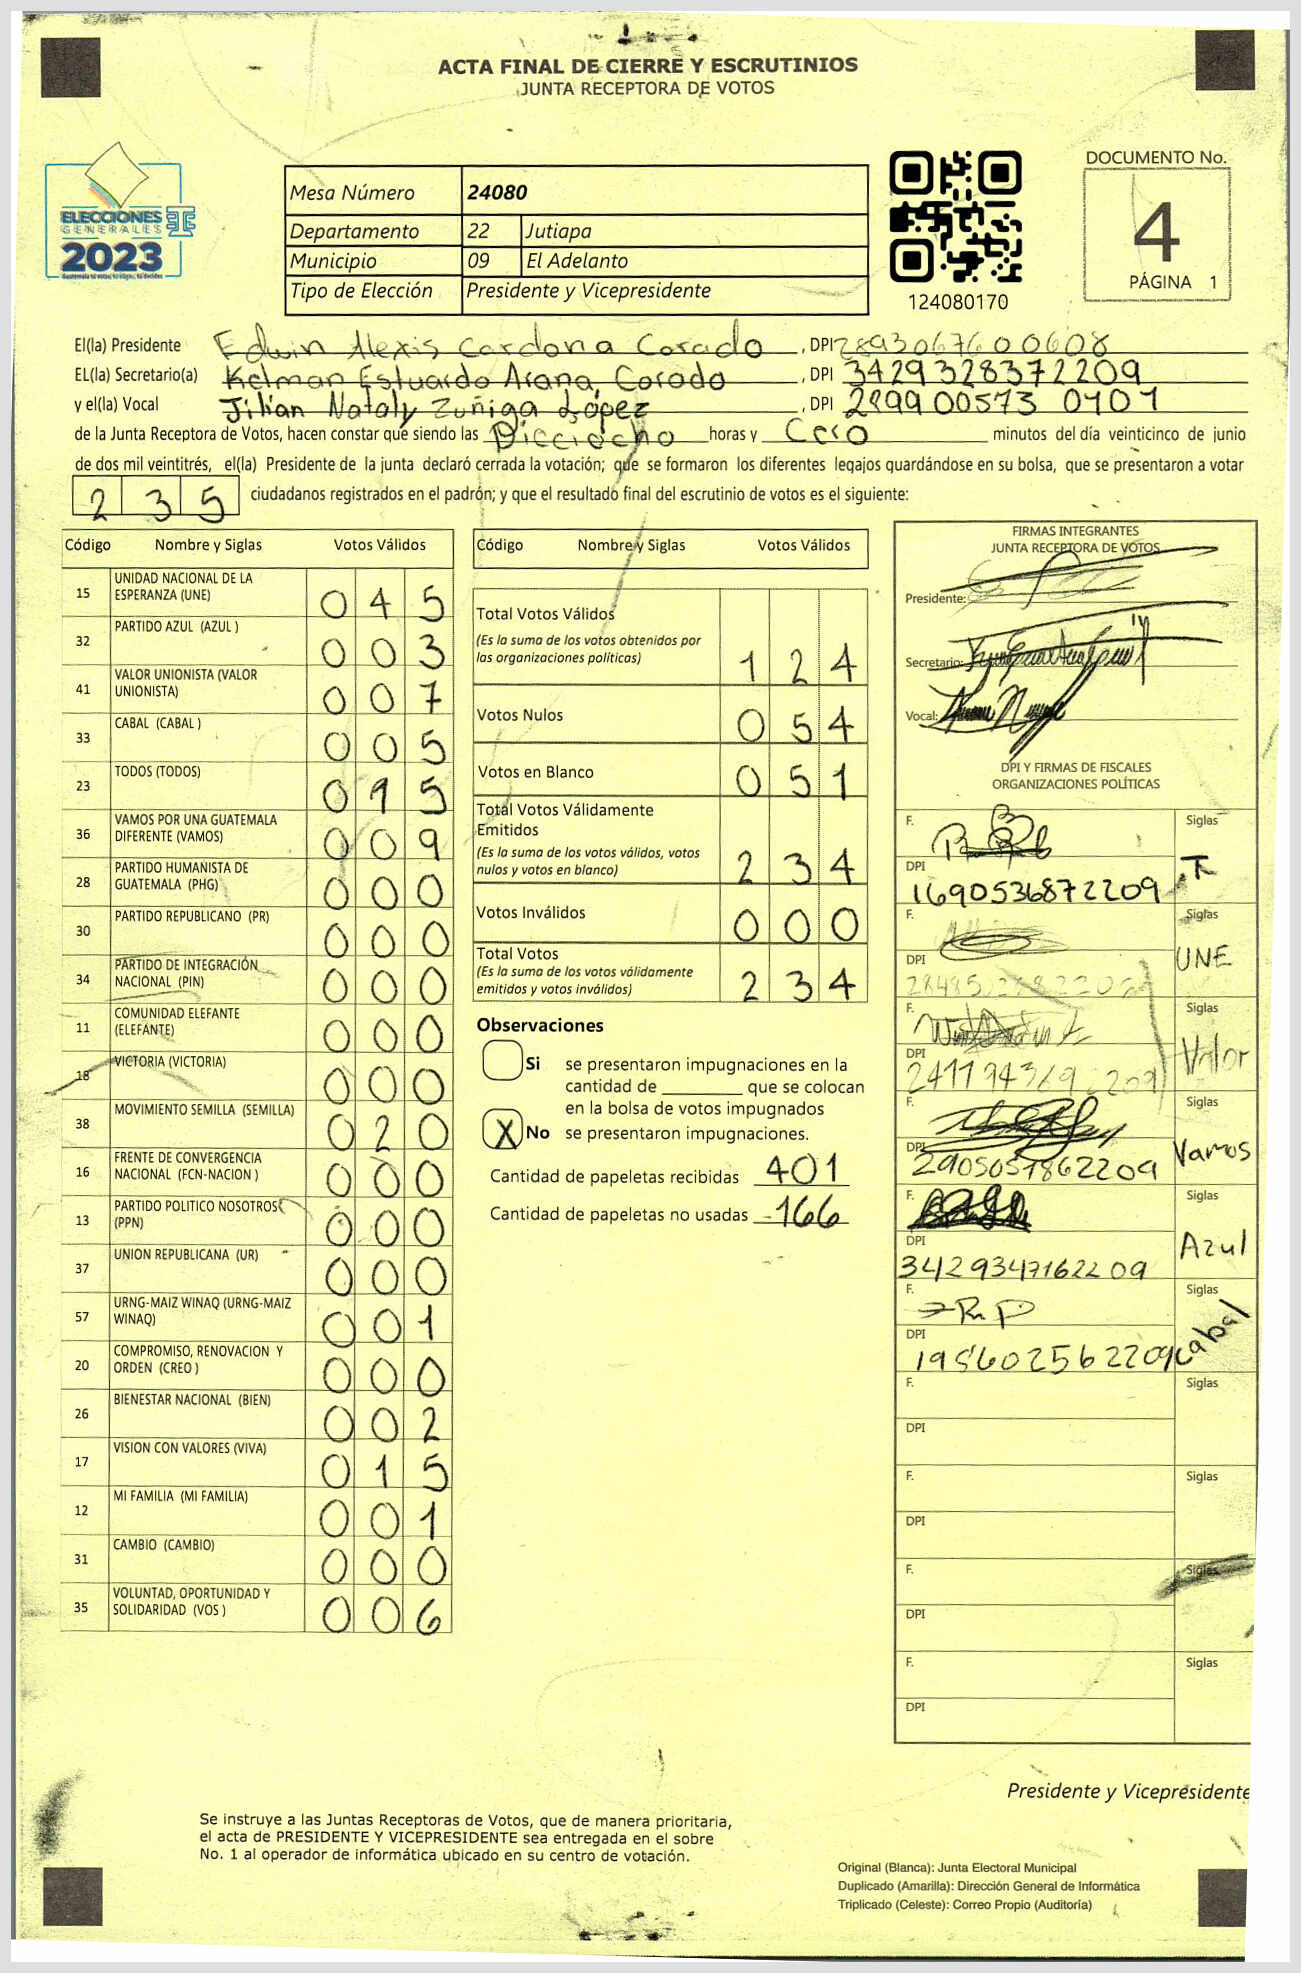 ACTA FINAL DE CIERRE Y ESCRUTINIOS
JUNTA RECEPTORA DE VOTOS
ELECCIONES
GENERALES
2023
Mesa Número 24080
Departamento 22 Jutiapa
Municipio 09 El Adelanto
Tipo de Elección Presidente y Vicepresidente
124080170
DOCUMENTO No.
4
PÁGINA 1
El(la) Presidente Edwin Alexis Cardona Corado , DPI 2893067600608
EL(la) Secretario(a) Kelman Estuardo Arana Corado , DPI 3429328372209
y el(la) Vocal Jilian Nataly Zuñiga López , DPI 2899005730401
de la Junta Receptora de Votos, hacen constar que siendo las Dieciocho horas y Cero minutos del día veinticinco de junio
de dos mil veintitrés, el(la) Presidente de la junta declaró cerrada la votación; que se formaron los diferentes legajos guardándose en su bolsa, que se presentaron a votar
235 ciudadanos registrados en el padrón; y que el resultado final del escrutinio de votos es el siguiente:
Código Nombre y Siglas Votos Válidos
15 UNIDAD NACIONAL DE LA ESPERANZA (UNE) 0 4 5
32 PARTIDO AZUL (AZUL ) 0 0 3
41 VALOR UNIONISTA (VALOR UNIONISTA) 0 0 7
33 CABAL (CABAL ) 0 0 5
23 TODOS (TODOS) 0 1 5
36 VAMOS POR UNA GUATEMALA DIFERENTE (VAMOS) 0 0 9
28 PARTIDO HUMANISTA DE GUATEMALA (PHG) 0 0 0
30 PARTIDO REPUBLICANO (PR) 0 0 0
34 PARTIDO DE INTEGRACIÓN NACIONAL (PIN) 0 0 0
11 COMUNIDAD ELEFANTE (ELEFANTE) 0 0 0
18 VICTORIA (VICTORIA) 0 0 0
38 MOVIMIENTO SEMILLA (SEMILLA) 0 2 0
16 FRENTE DE CONVERGENCIA NACIONAL (FCN-NACION ) 0 0 0
13 PARTIDO POLITICO NOSOTROS (PPN) 0 0 0
37 UNION REPUBLICANA (UR) 0 0 0
57 URNG-MAIZ WINAQ (URNG-MAIZ WINAQ) 0 0 1
20 COMPROMISO, RENOVACION Y ORDEN (CREO ) 0 0 0
26 BIENESTAR NACIONAL (BIEN) 0 0 2
17 VISION CON VALORES (VIVA) 0 1 5
12 MI FAMILIA (MI FAMILIA) 0 0 1
31 CAMBIO (CAMBIO) 0 0 0
35 VOLUNTAD, OPORTUNIDAD Y SOLIDARIDAD (VOS ) 0 0 6
Código Nombre y Siglas Votos Válidos
Total Votos Válidos
(Es la suma de los votos obtenidos por
las organizaciones políticas) 1 2 4
Votos Nulos 0 5 4
Votos en Blanco 0 5 1
Total Votos Válidamente
Emitidos
(Es la suma de los votos válidos, votos
nulos y votos en blanco) 2 3 4
Votos Inválidos 0 0 0
Total Votos
(Es la suma de los votos válidamente
emitidos y votos inválidos) 2 3 4
Observaciones
Si se presentaron impugnaciones en la
cantidad de ________ que se colocan
en la bolsa de votos impugnados
X No se presentaron impugnaciones.
Cantidad de papeletas recibidas 401
Cantidad de papeletas no usadas 166
FIRMAS INTEGRANTES
JUNTA RECEPTORA DE VOTOS
Presidente:
Secretario:
Vocal:
DPI Y FIRMAS DE FISCALES
ORGANIZACIONES POLÍTICAS
F. Siglas
DPI
1690536872209
F. Siglas
DPI UNE
F. Siglas
DPI Valor
F. Siglas
DPI Vamos
2905057862209
F. Siglas
DPI Azul
3429347162209
F. Siglas
DPI Cabal
195602562209
F. Siglas
DPI
F. Siglas
DPI
F. Siglas
DPI
F. Siglas
DPI
Presidente y Vicepresidente
Se instruye a las Juntas Receptoras de Votos, que de manera prioritaria,
el acta de PRESIDENTE Y VICEPRESIDENTE sea entregada en el sobre
No. 1 al operador de informática ubicado en su centro de votación.
Original (Blanca): Junta Electoral Municipal
Duplicado (Amarilla): Dirección General de Informática
Triplicado (Celeste): Correo Propio (Auditoría)